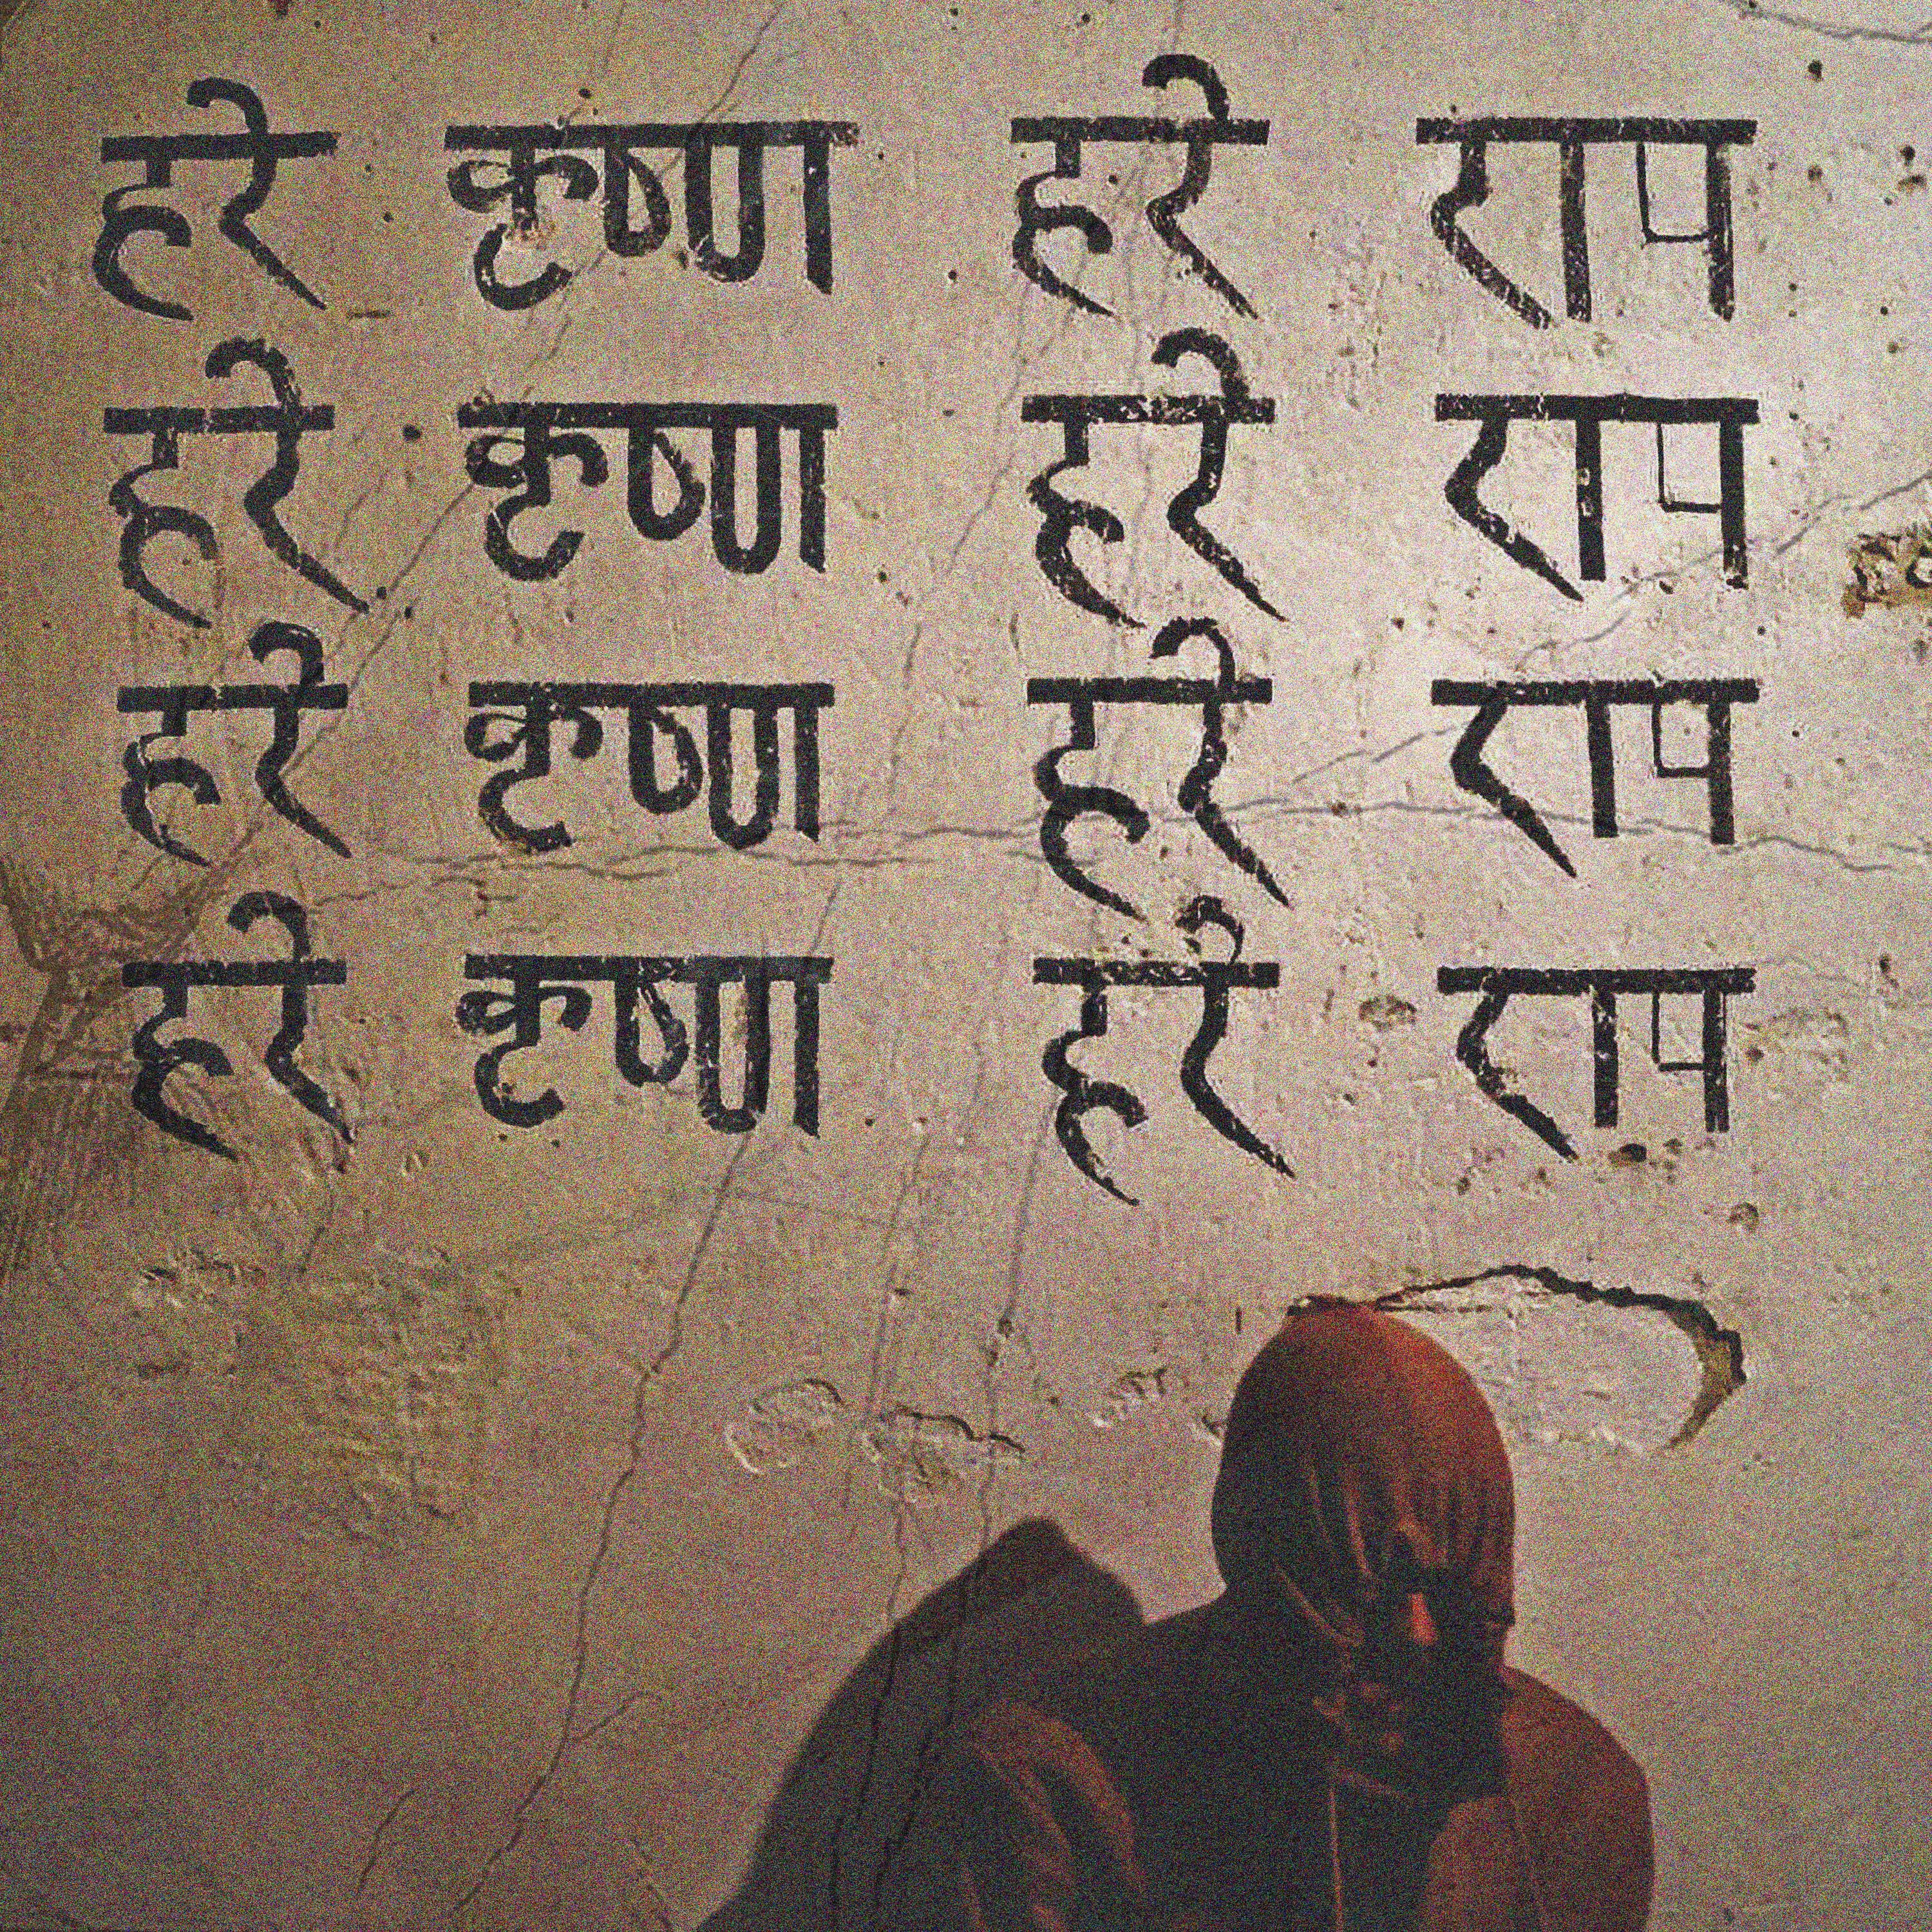 हरे कृष्ण हरे राम
हरे कृष्ण हरे राम
हरे कृष्ण हरे राम
हरे कृष्ण हरे राम